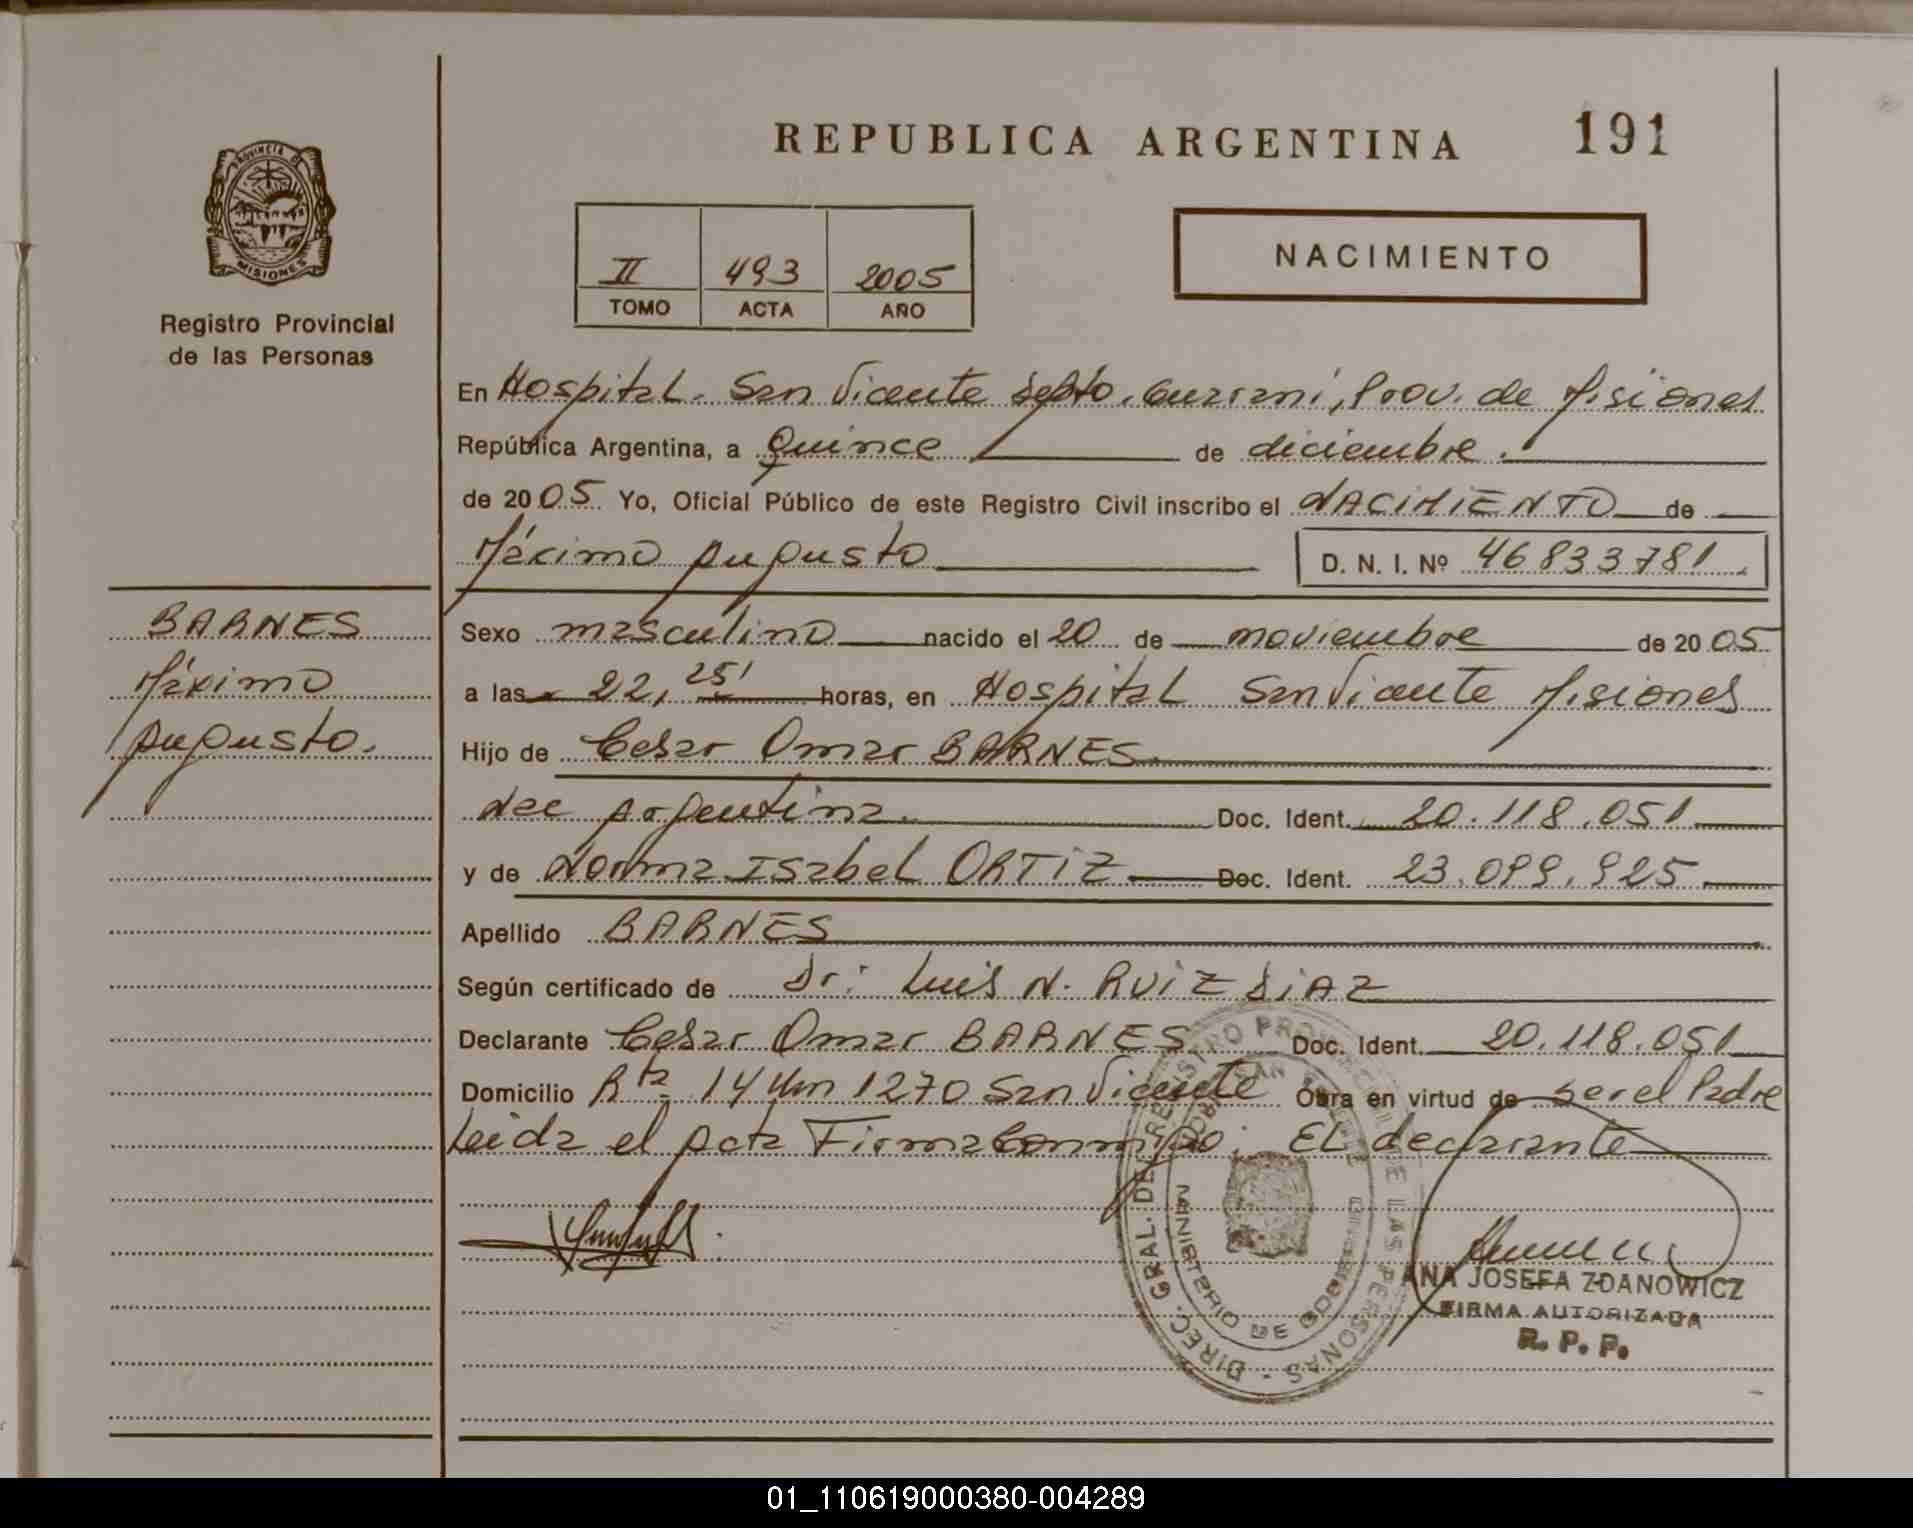 REPUBLICA ARGENTINA 191
PROVINCIA DE
MISIONES
Registro Provincial
de las Personas
II 493 2005
TOMO ACTA AÑO
NACIMIENTO
En Hospital. San Vicente Depto. Guaraní, Prov. de Misiones
República Argentina, a Quince de diciembre.
de 2005 Yo, Oficial Público de este Registro Civil inscribo el NACIMIENTO de
Máximo Augusto D. N. I. Nº 46833781.
BARNES
Máximo
Augusto.
Sexo masculino nacido el 20 de noviembre de 2005
a las 22, 25' horas, en Hospital San Vicente Misiones
Hijo de Cesar Omar BARNES
Nac Argentina. Doc. Ident. 20.118.051
y de Norma Isabel ORTIZ Doc. Ident. 23.099.925
Apellido BARNES
Según certificado de Dr: Luis N. RUIZ DIAZ
Declarante Cesar Omar BARNES Doc. Ident. 20.118.051
Domicilio Rta 14 Km 1270 San Vicente Obra en virtud de ser el Padre
Leida el Acta Firma Conmigo; EL declarante
DIREC. GRAL. DEL REGISTRO PROVINCIAL DE LAS PERSONAS
MINISTERIO DE GOBIERNO
ANA JOSEFA ZDANOWICZ
FIRMA AUTORIZADA
R. P. P.
01_110619000380-004289